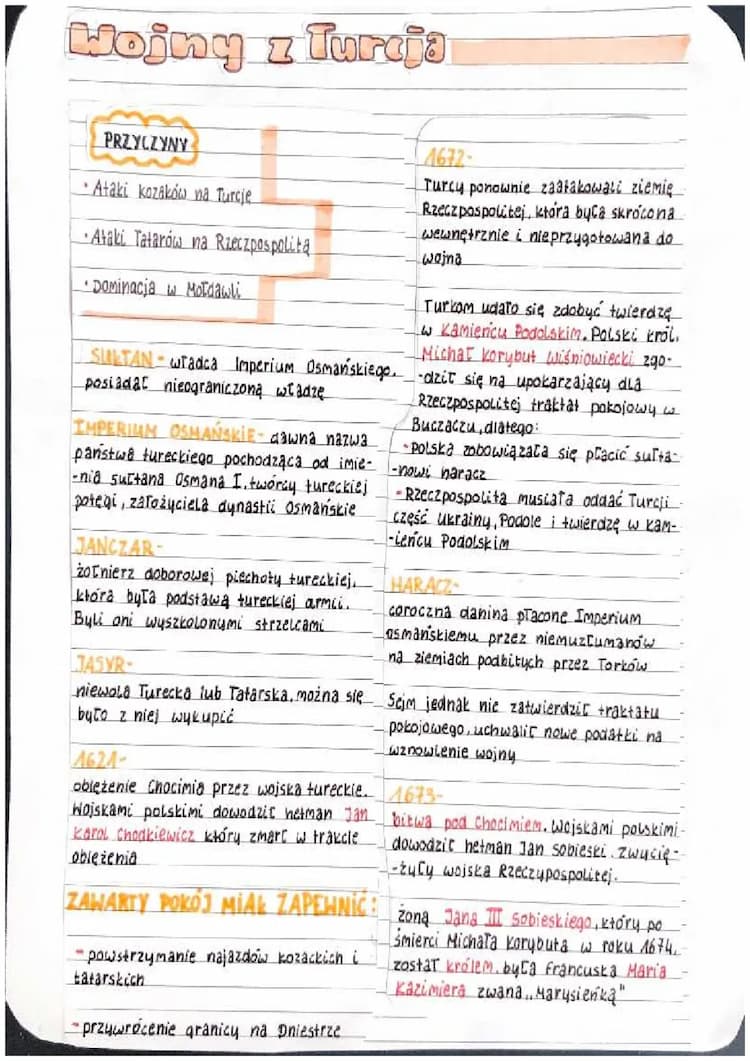 Wojny z Turcją
PRZYCZYNY
• Ataki kozaków na Turcję
• Ataki Tatarów na Rzeczpospolitą
• Dominacja w Mołdawii
SUŁTAN - władca Imperium Osmańskiego.
posiadał nieograniczoną władzę
IMPERIUM OSMAŃSKIE - dawna nazwa
państwa tureckiego pochodząca od imie-
-nia sułtana Osmana I, twórcy tureckiej
potęgi, założyciela dynastii Osmańskie
JANCZAR -
żołnierz doborowej piechoty tureckiej,
która była podstawą tureckiej armii.
Byli oni wyszkolonymi strzelcami
JASYR -
niewola Turecka lub Tatarska, można się
było z niej wykupić
1621 -
oblężenie Chocimia przez wojska tureckie.
Wojskami polskimi dowodził hetman Jan
Karol Chodkiewicz który zmarł w trakcie
oblężenia
ZAWARTY POKÓJ MIAŁ ZAPEWNIĆ:
- powstrzymanie najazdów kozackich i
tatarskich
- przywrócenie granicy na Dniestrze
1672 -
Turcy ponownie zaatakowali ziemię
Rzeczpospolitej, która była skrócona
wewnętrznie i nieprzygotowana do
wojna
Turkom udało się zdobyć twierdzę
w Kamieńcu Podolskim. Polski król,
Michał Korybut Wiśniowiecki zgo-
-dził się na upokarzający dla
Rzeczpospolitej traktat pokojowy w
Buczaczu, dlatego:
- Polska zobowiązała się płacić sułta-
-nowi haracz
- Rzeczpospolita musiała oddać Turcji
część Ukrainy, Podole i twierdzę w Kam-
-ieńcu Podolskim
HARACZ -
coroczna danina płacone Imperium
osmańskiemu przez niemuzłumanów
na ziemiach podbitych przez Torków
Sejm jednak nie zatwierdził traktatu
pokojowego, uchwalił nowe podatki na
wznowienie wojny
1673 -
bitwa pod Chocimiem. Wojskami polskimi
dowodził hetman Jan Sobieski. Zwycię-
-żyły wojska Rzeczypospolitej.
żoną Jana III Sobieskiego, który po
śmierci Michała Korybuta w roku 1674,
został królem, była Francuska Maria
Kazimiera zwana „Marysieńką"